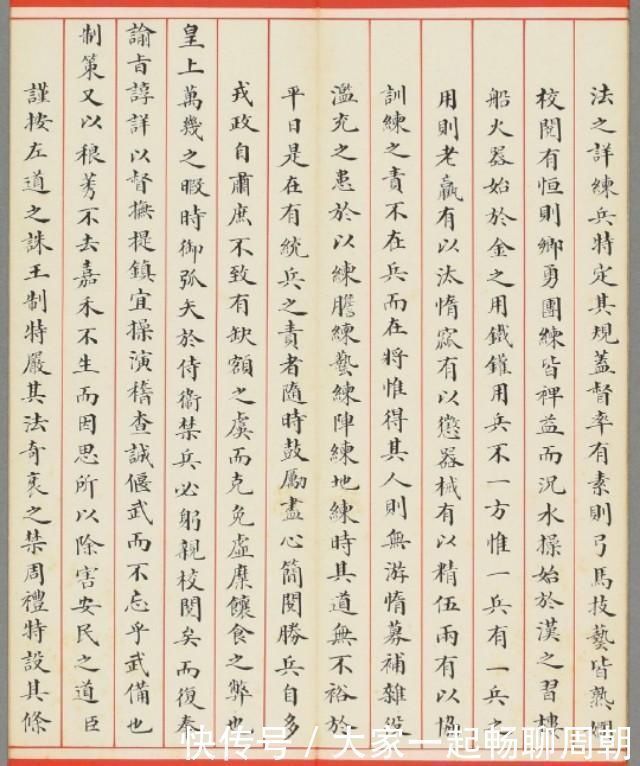 法之詳練兵特定其規蓋督率有素則弓馬技藝皆熟
校閱有恒則鄉勇團練皆裨益而況水操始於漢之習樓
船火器始於金之用鐵鑵用兵不一方惟一兵有一兵之
用則老羸有以汰惰窳有以懲器械有以精伍兩有以協
訓練之責不在兵而在將惟得其人則無游惰募補雜役
濫充之患於以練膽練藝練陣練地練時其道無不裕於
平日是在有統兵之責者隨時鼓勵盡心簡閱勝兵自多
戎政自肅庶不致有缺額之虞而克免虛糜饟食之弊也
皇上萬幾之暇時御弧矢於侍衞禁兵必躬親校閱矣而復奉
諭旨諄詳以督撫提鎮宜操演稽查誠偃武而不忘乎武備也
制策又以稂莠不去嘉禾不生而因思所以除害安民之道臣
謹按左道之誅王制特嚴其法奇衺之禁周禮特設其條
快传号 / 大家一起畅聊周朝